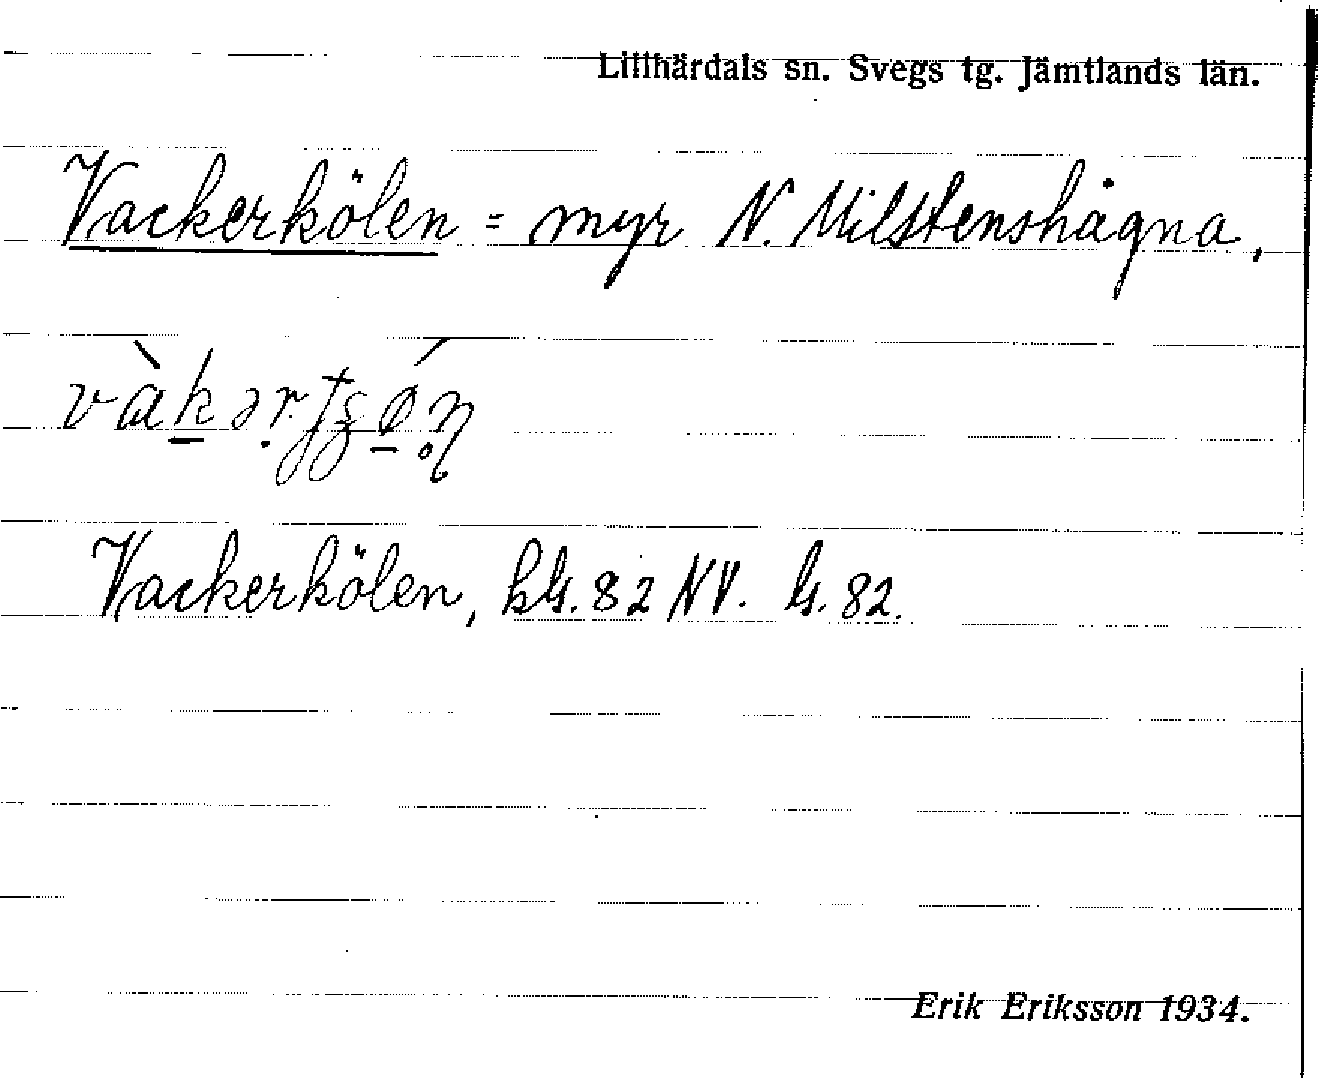 Lillhärdals sn. Svegs tg. Jämtlands län.
Vackerkölen = myr N. Milstenshågna,
Vackerkölen, kbl. 82 NV. bl. 82.
Erik Eriksson 1934.